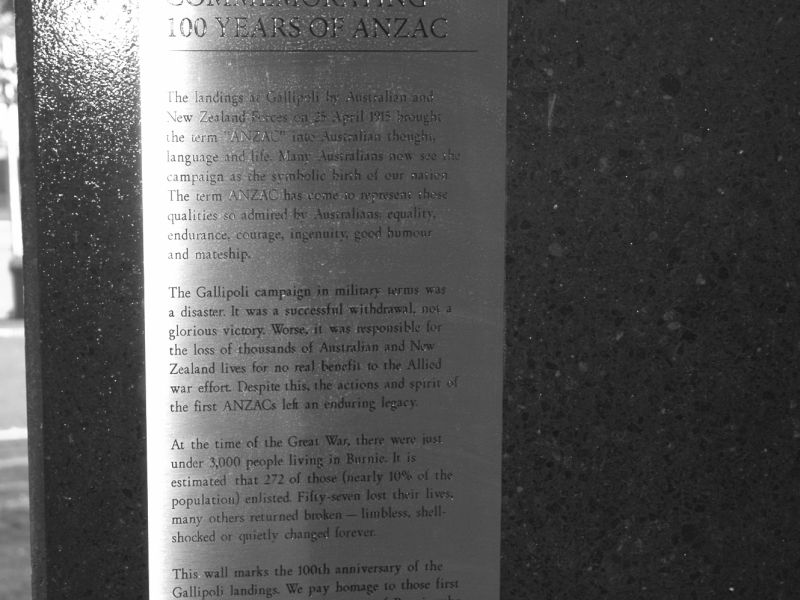 COMMEMORATING
100 YEARS OF ANZAC
The landings at Gallipoli by Australian and
New Zealand Forces on 25 April 1915 brought
the term "ANZAC" into Australian thought,
language and life. Many Australians now see the
campaign as the symbolic birth of our nation.
The term ANZAC has come to represent those
qualities so admired by Australians: equality,
endurance, courage, ingenuity, good humour
and mateship.
The Gallipoli campaign in military terms was
a disaster. It was a successful withdrawal, not a
glorious victory. Worse, it was responsible for
the loss of thousands of Australian and New
Zealand lives for no real benefit to the Allied
war effort. Despite this, the actions and spirit of
the first ANZACs left an enduring legacy.
At the time of the Great War, there were just
under 3,000 people living in Burnie. It is
estimated that 272 of those (nearly 10% of the
population) enlisted. Fifty-seven lost their lives,
many others returned broken – limbless, shell-
shocked or quietly changed forever.
This wall marks the 100th anniversary of the
Gallipoli landings. We pay homage to those first